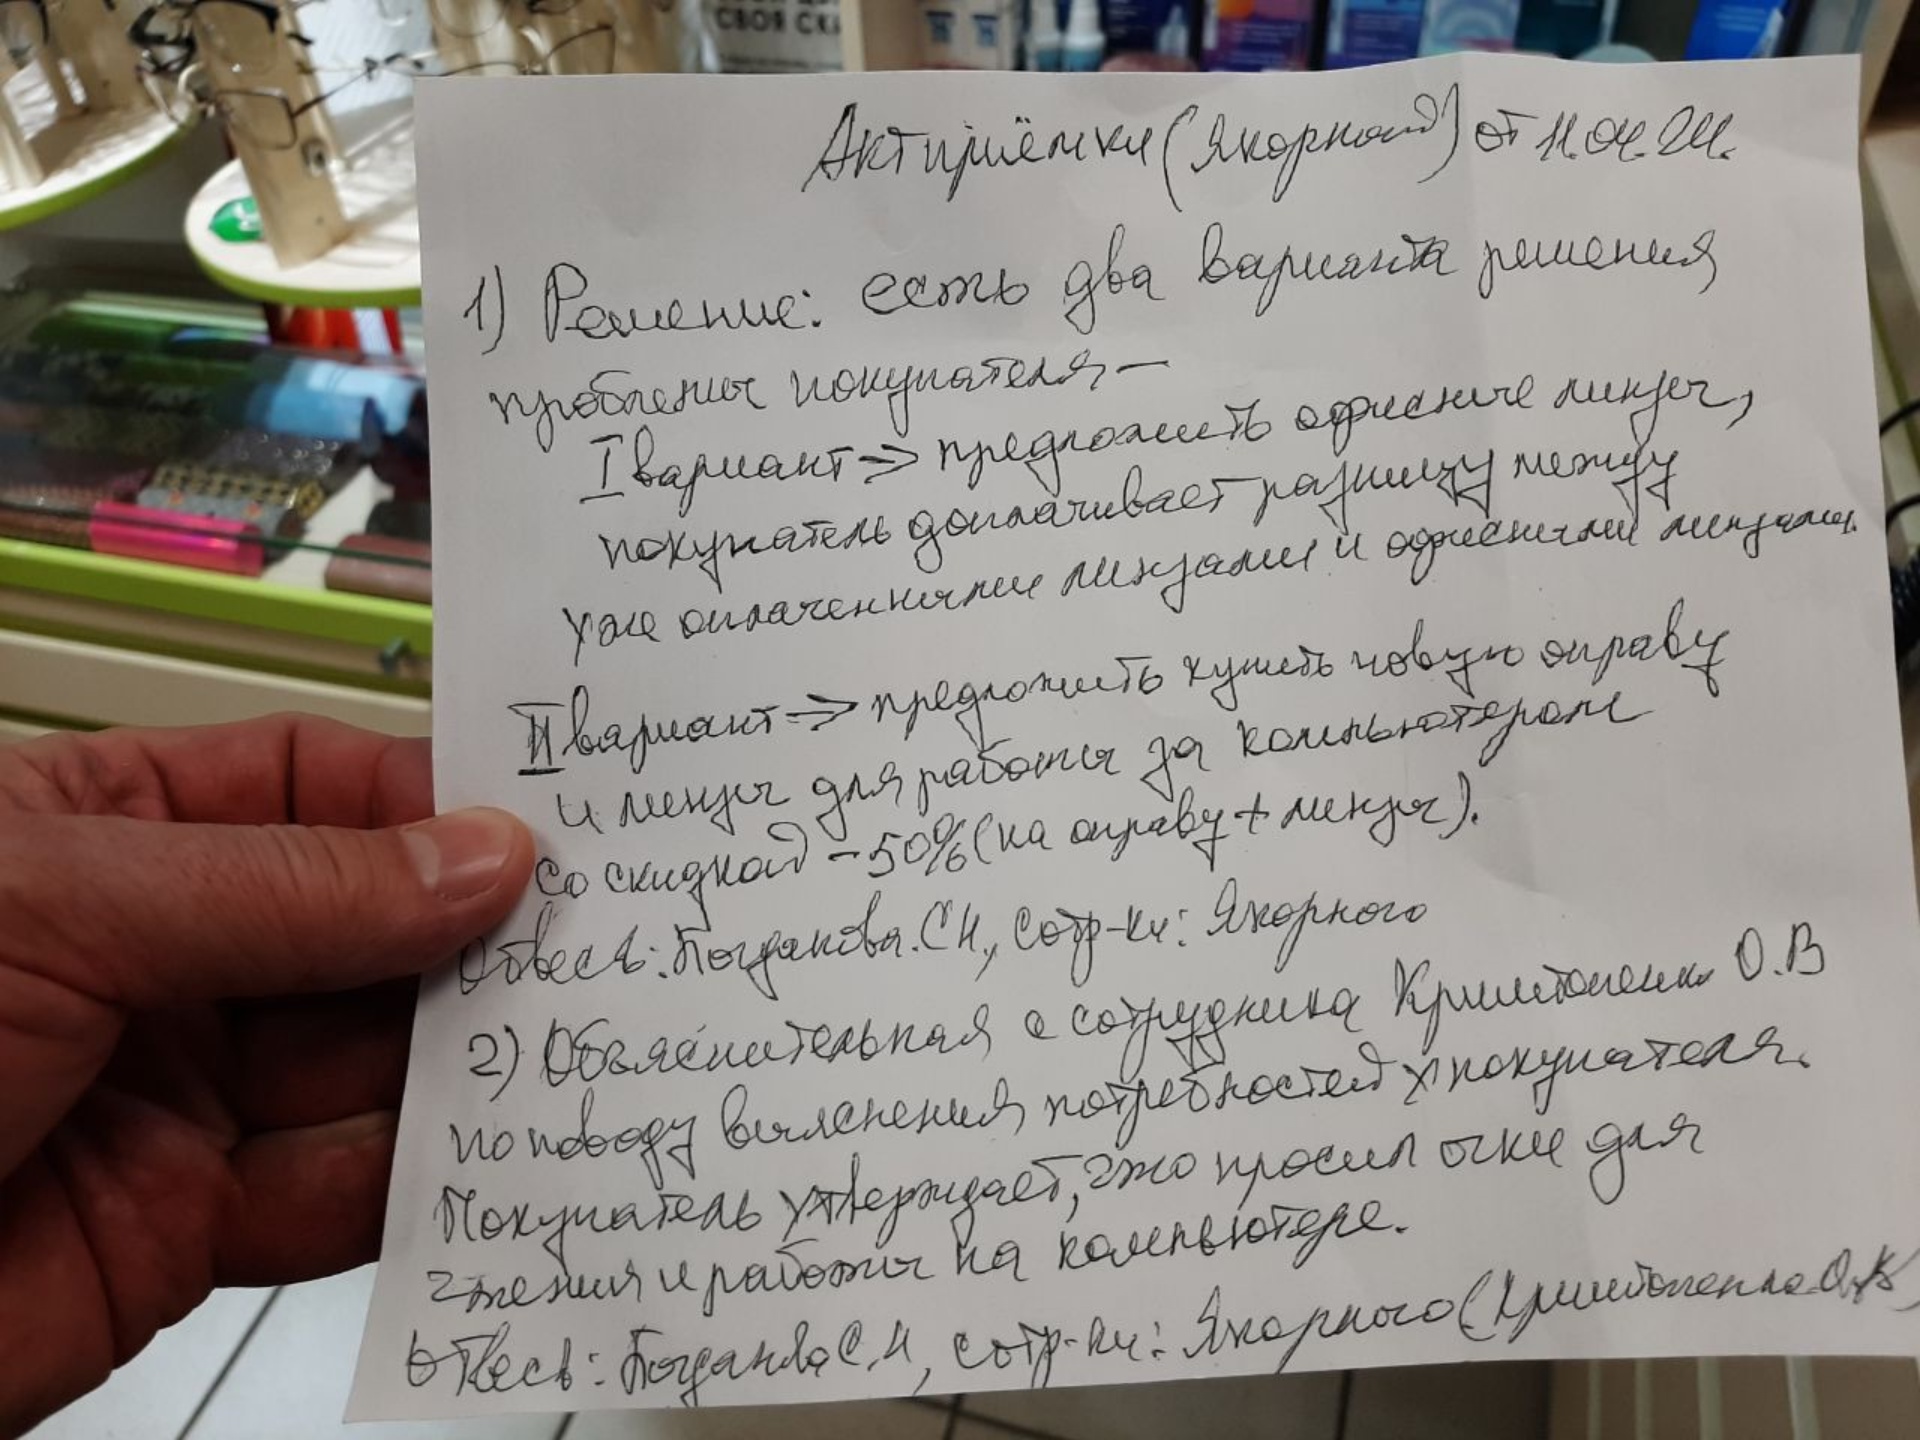 СВОЯ
Акт приёмки (Якорной) от 11.04.24.
1) Решение: есть два варианта решения
проблемы покупателя –
I вариант => предложить офисные линзы,
покупатель доплачивает разницу между
уже оплаченными линзами и офисными линзами.
II вариант => предложить купить новую оправу
и линзы для работы за компьютером
со скидкой – 50% (на оправу + линзы).
Ответ: Богданова. С.Н., сотр-ки: Якорного
2) Объяснительная с сотрудника О.В
по поводу выяснения потребностей у покупателя.
Покупатель утверждает, что просил очки для
чтения и работы на компьютере.
Ответ: Богданова С.Н, сотр-ки: Якорного (